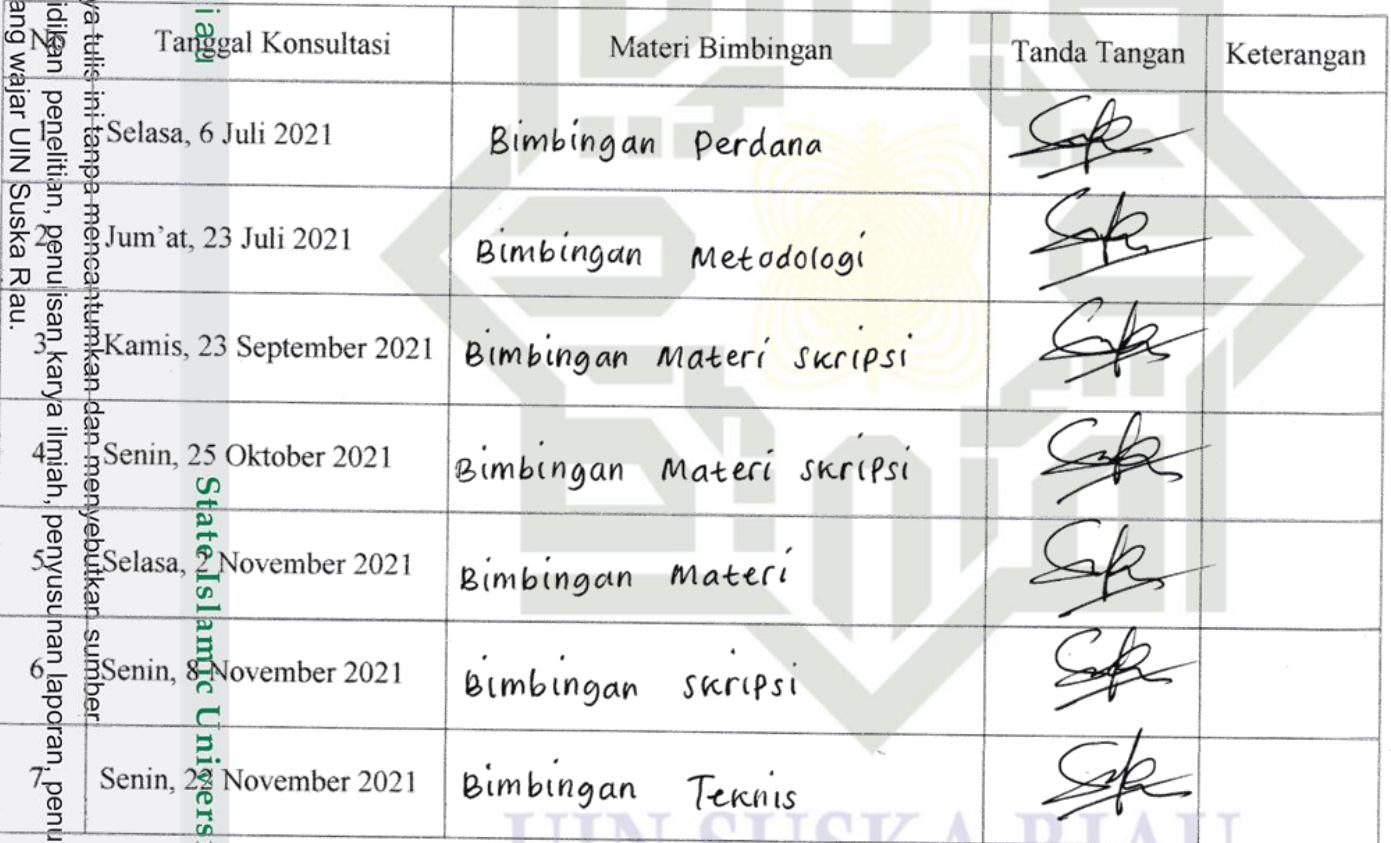 No Tanggal Konsultasi Materi Bimbingan Tanda Tangan Keterangan
1 Selasa, 6 Juli 2021 Bimbingan Perdana
2 Jum'at, 23 Juli 2021 Bimbingan Metodologi
3 Kamis, 23 September 2021 Bimbingan Materi skripsi
4 Senin, 25 Oktober 2021 Bimbingan Materi skripsi
5 Selasa, 2 November 2021 Bimbingan Materi
6 Senin, 8 November 2021 Bimbingan skripsi
7 Senin, 22 November 2021 Bimbingan Teknis
ya tulis ini tanpa mencantumkan dan menyebutkan sumber
idikan, penelitian, penulisan karya ilmiah, penyusunan laporan, penu
ang wajar UIN Suska Riau.
iau
State Islamic Univers
UIN SUSKA RIAU